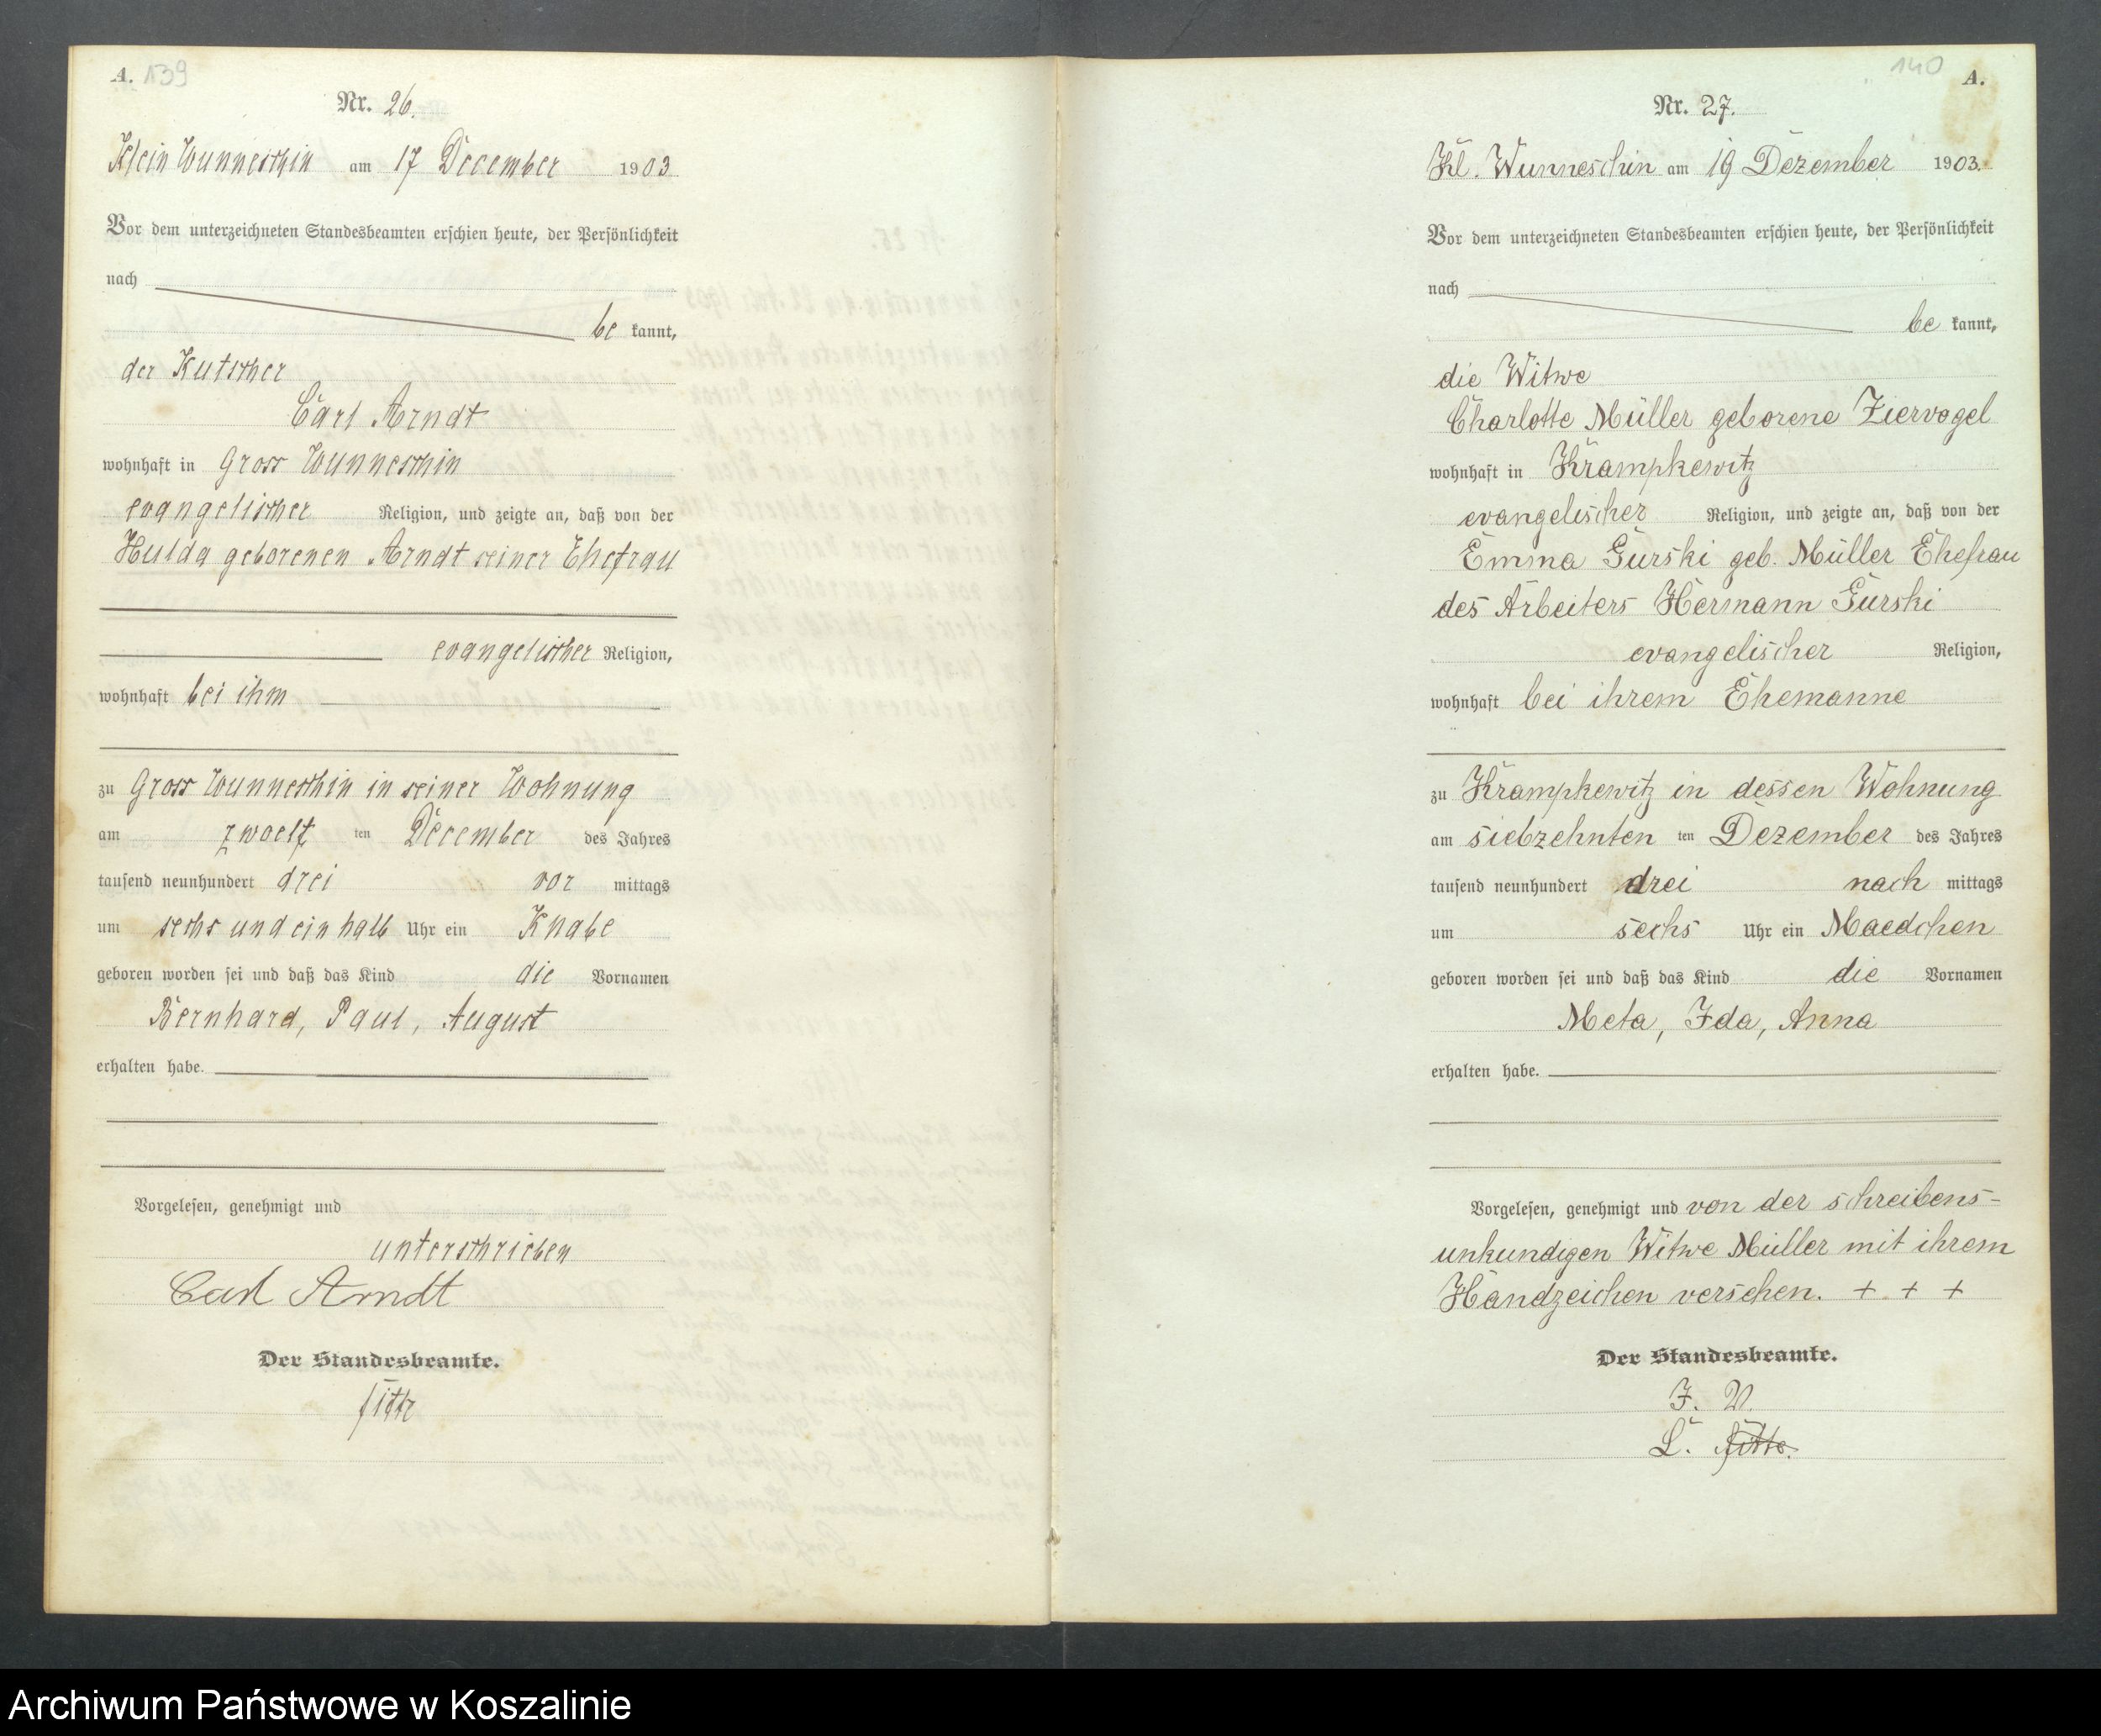 A. 139
Nr. 26.
Klein Wunneschin am 17 December 1903
Vor dem unterzeichneten Standesbeamten erschien heute, der Persönlichkeit
nach
be kannt,
der Kutscher
Carl Arndt
wohnhaft in Gross Wunneschin
evangelischer Religion, und zeigte an, daß von der
Hulda geborenen Arndt seiner Ehefrau
evangelischer Religion,
wohnhaft bei ihm
zu Gross Wunneschin in seiner Wohnung
am zwoelf ten December des Jahres
tausend neunhundert drei vor mittags
um sechs und ein halb Uhr ein Knabe
geboren worden sei und daß das Kind die Vornamen
Bernhard, Paul, August
erhalten habe.
Vorgelesen, genehmigt und
unterschrieben
Carl Arndt
Der Standesbeamte.
140 A.
Nr. 27.
Kl. Wunneschin am 19 Dezember 1903.
Vor dem unterzeichneten Standesbeamten erschien heute, der Persönlichkeit
nach
be kannt,
die Witwe
Charlotte Müller geborene Ziervogel
wohnhaft in Krampkewitz
evangelischer Religion, und zeigte an, daß von der
Emma Gurski geb. Müller Ehefrau
des Arbeiters Hermann Gurski
evangelischer Religion,
wohnhaft bei ihrem Ehemanne
zu Krampkewitz in dessen Wohnung
am siebzehnten ten Dezember des Jahres
tausend neunhundert drei nach mittags
um sechs Uhr ein Maedchen
geboren worden sei und daß das Kind die Vornamen
Meta, Ida, Anna
erhalten habe.
Vorgelesen, genehmigt und von der schreibens-
unkundigen Witwe Müller mit ihrem
Handzeichen versehen. + + +
Der Standesbeamte.
I. V.
L.
Archiwum Państwowe w Koszalinie